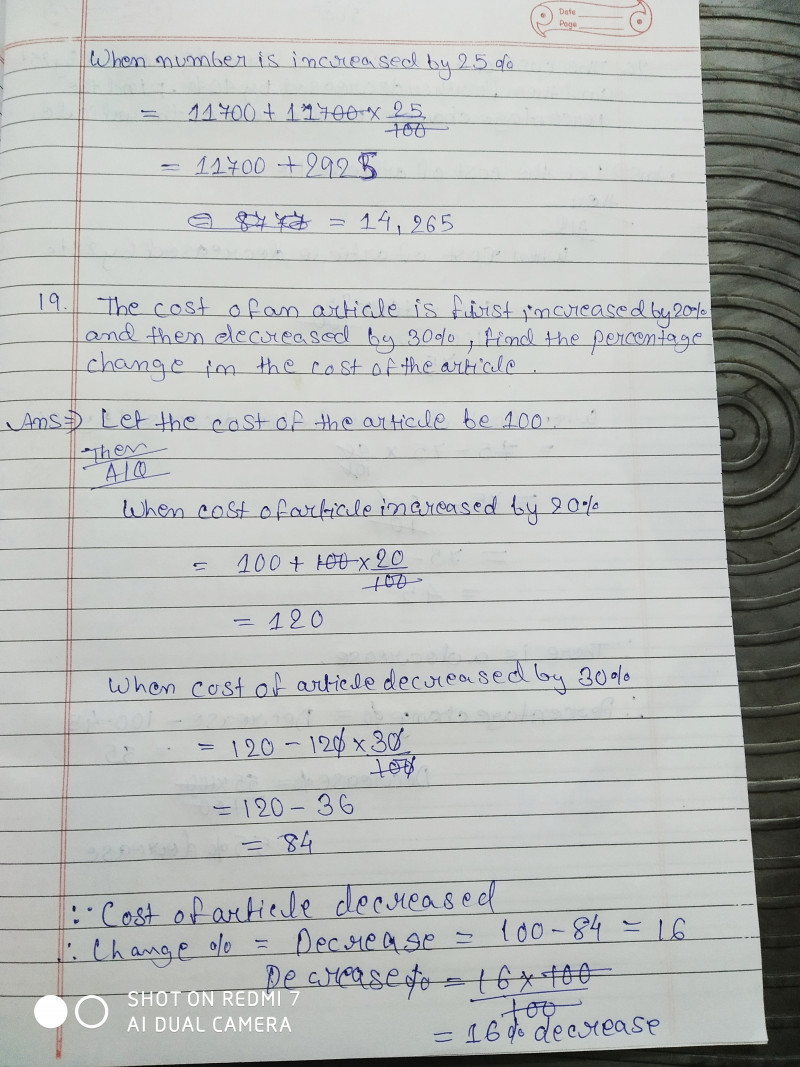 Date
Page
When number is increased by 25%
= 11700 + 11700 × 25/100
= 11700 + 2925
= 14,265
19. The cost of an article is first increased by 20%
and then decreased by 30%, find the percentage
change in the cost of the article.
Ans⇒ Let the cost of the article be 100.
Then
A/Q
When cost of article increased by 20%
= 100 + 100 × 20/100
= 120
When cost of article decreased by 30%
= 120 - 120 × 30/100
= 120 - 36
= 84
∵ Cost of article decreased
∴ Change % = Decrease = 100 - 84 = 16
Decrease% = 16 × 100/100
= 16% decrease
SHOT ON REDMI 7
AI DUAL CAMERA